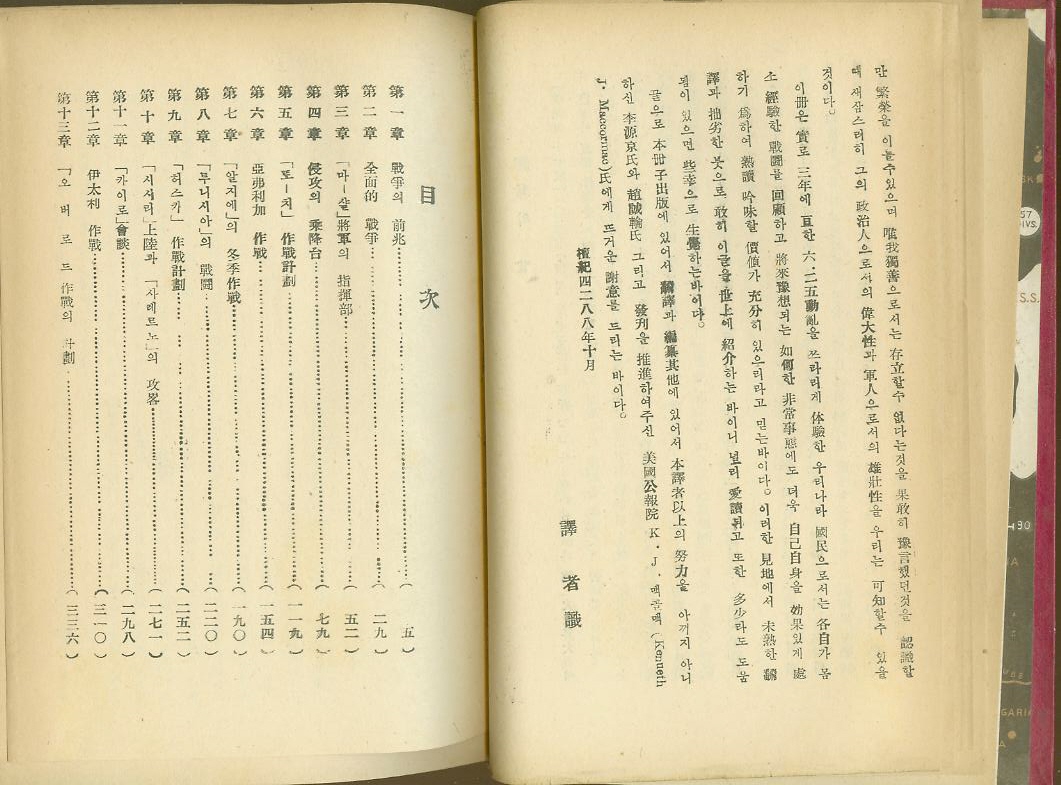 만 繁榮을 이룰수있으며 唯我獨善으로서는 存立할수 없다는것을 果敢히 豫言했던것을 認識할
때 새삼스러히 그의 政治人으로서의 偉大性과 軍人으로서의 雄壯性을 우리는 可知할수 있을
것이다。
이冊은 實로 三年에 亘한 六・二五動亂을 쓰라리게 体驗한 우리나라 國民으로서는 各自가 몸
소 經驗한 戰鬪를 回顧하고 將來豫想되는 如何한 非常事態에도 더욱 自己自身을 効果있게 處
하기 爲하여 熟讀 吟味할 價値가 充分히 있으리라고 믿는바이다。 이러한 見地에서 未熟한 飜
譯과 拙劣한 붓으로 敢히 이글을 世上에 紹介하는 바이니 널리 愛讀되고 또한 多少라도 도움
됨이 있으면 些幸으로 生覺하는바이다。
끝으로 本冊子出版에 있어서 飜譯과 編纂其他에 있어서 本譯者以上의 努力을 아끼지 아니
하신 李源京氏와 趙誠輪氏 그리고 發刊을 推進하여주신 美國公報院 K・J・맥콤맥(Kenneth
J・Maccormac)氏에게 뜨거운 謝意를 드리는 바이다。
檀紀四二八八年十月
譯者識
目次
第一章 戰爭의 前兆……(五)
第二章 全面的 戰爭……(二九)
第三章 「마ー샬」將軍의 指揮部……(五二)
第四章 侵攻의 乘降台……(七九)
第五章 「토ー치」 作戰計劃……(一一九)
第六章 亞弗利加 作戰……(一五四)
第七章 「알지에」의 冬季作戰……(一九〇)
第八章 「투니시아」의 戰鬪……(二二〇)
第九章 「허스키」 作戰計劃……(二五二)
第十章 「시시리」上陸과 「사레르노」의 攻畧……(二七一)
第十一章 「카이로」會談……(二九八)
第十二章 伊太利 作戰……(三一〇)
第十三章 「오버로드作戰의 計劃……(三三六)
57
IVS.
S.S.
GARI